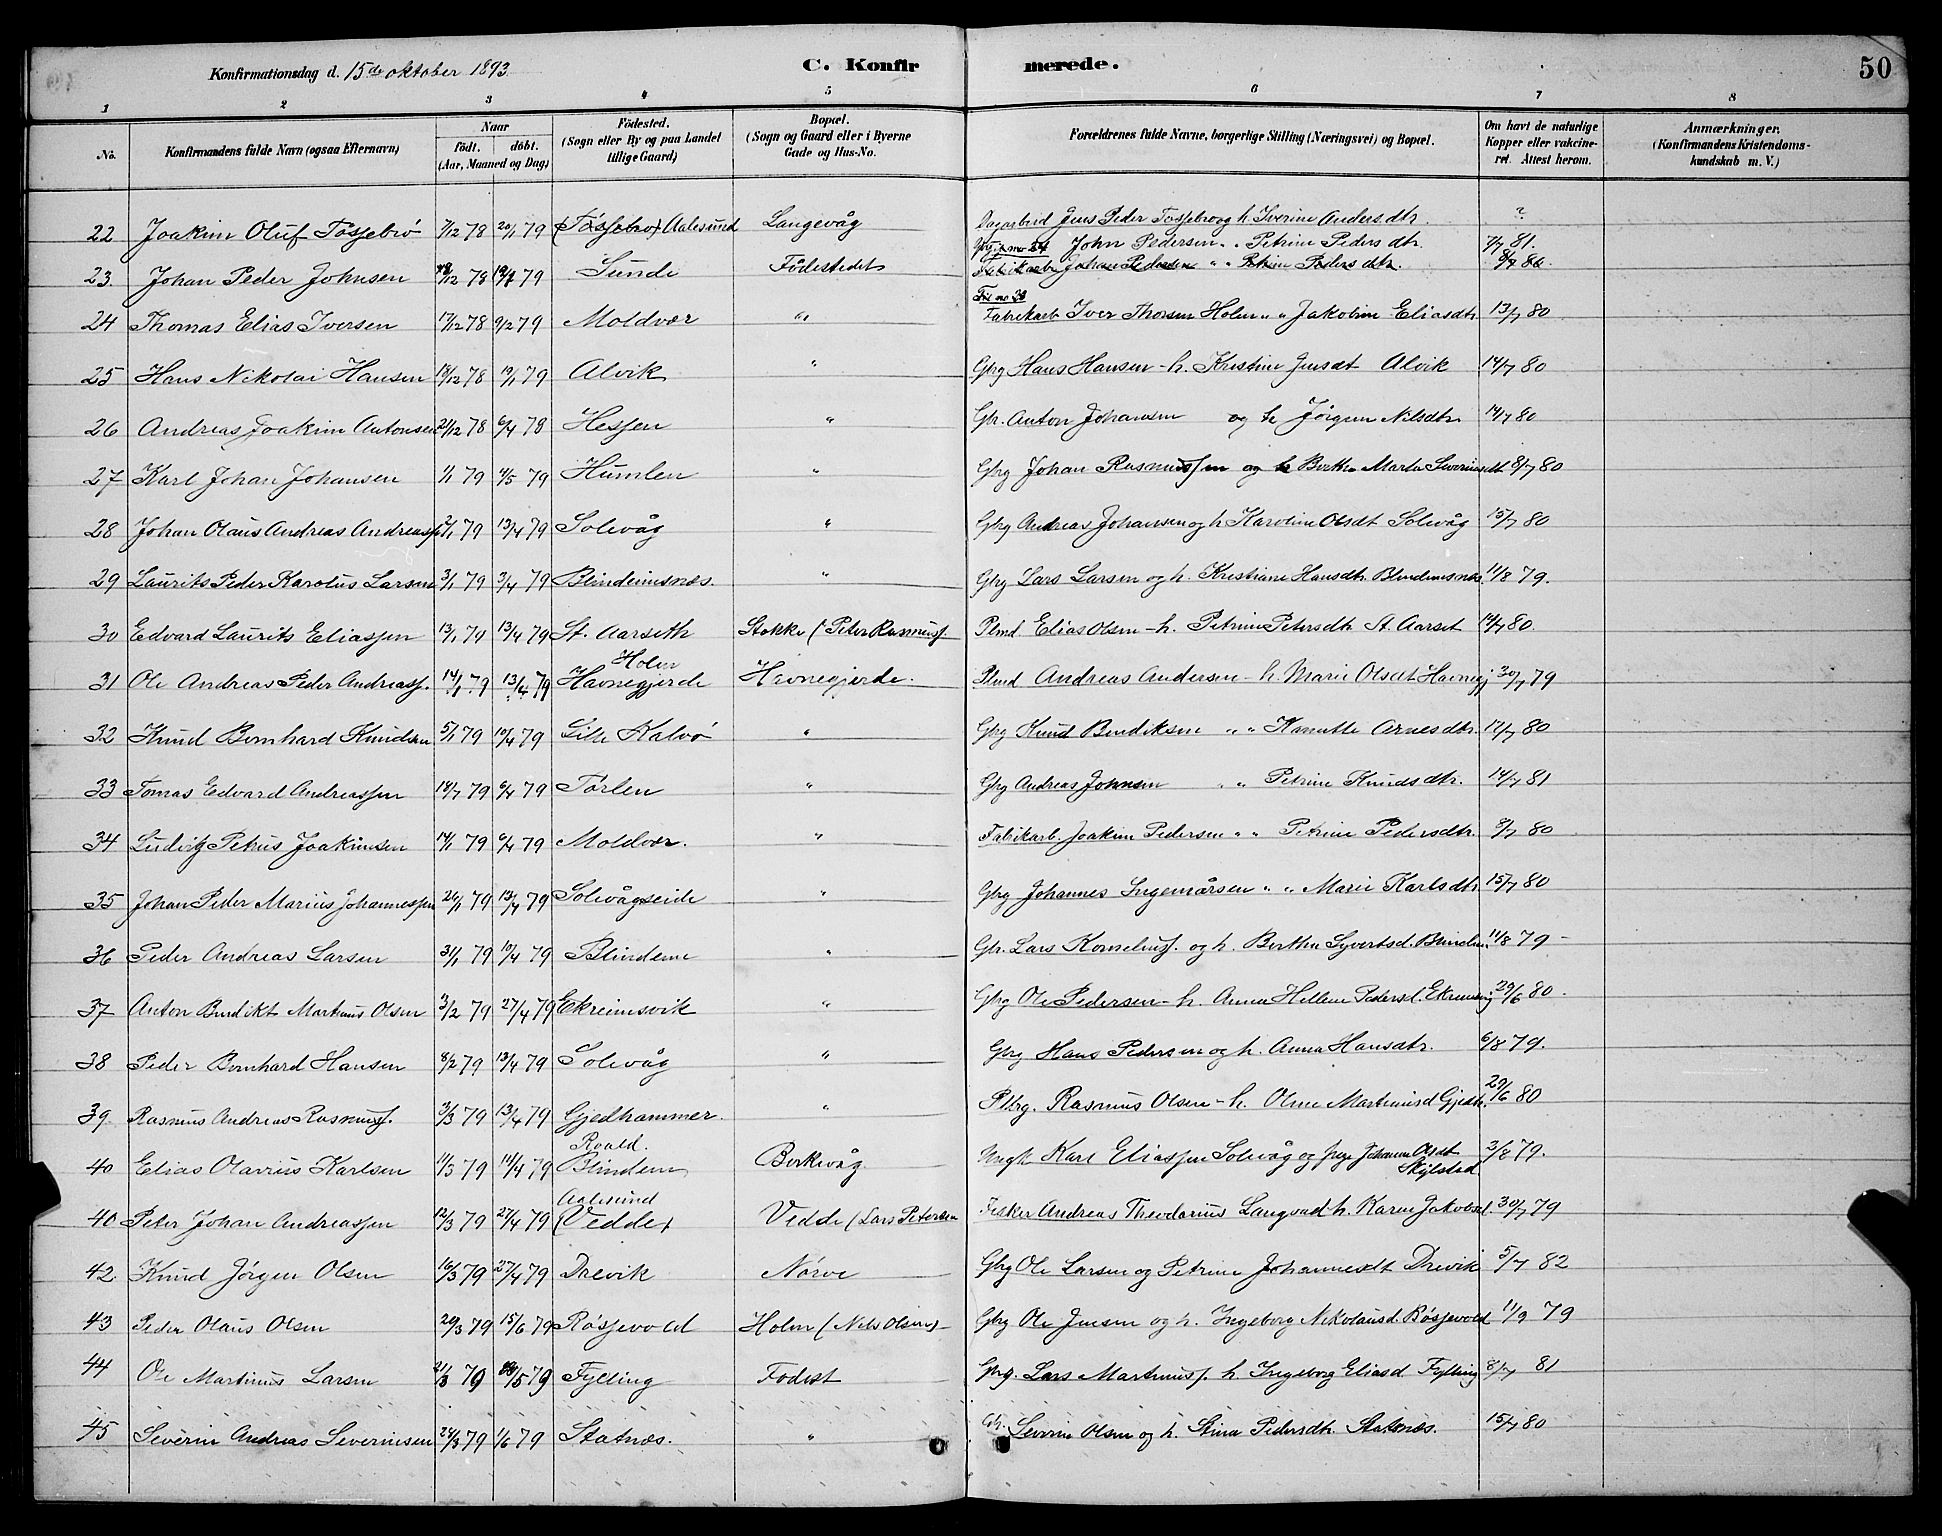 Konfirmationsdag d. 15de oktober 1893. C. Konfirmerede. 50
1 2 3 4 5 6 7 8
No. Konfirmandens fulde Navn (ogsaa Efternavn) Naar födt. döbt. (Aar, Maaned og Dag) Födested. (Sogn eller By og paa Landet tillige Gaard) Bopæl. (Sogn og Gaard eller i Byerne Gade og Hus-No. Forældrenes fulde Navne, borgerlige Stilling (Næringsvei) og Bopæl. Om havt de naturlige Kopper eller vakcineret. Attest herom. Anmærkninger. (Konfirmandens Kristendomskundskab m. V.)
22 Joakim Oluf Tossebrö 7/12 78 20/1 79 (Tössebro) Aalesund Langevåg Dagarbeid Jens Peder Tossebro og h. Iverine Andersdtr. ?
23. Johan Peder Johnsen /12 78 79 Sunde Födestedet Gbrg John Pedersen " " Petrine Pedersdtr. 7/7 81.
Fabrikarb Johan Pedersen " " Petrine Pedersdtr. 8/7 80.
24 Thomas Elias Iversen 17/12 78 9/2 79 Moldvær " Fabrikarb Iver Thorsen Holen " " Jakobine Eliasdtr 13/7 80
25 Hans Nikolai Hansen 18/12 78 19/1 79 Alvik " Gbrg Hans Hansen - h. Kristine Jensdt Alvik 14/7 80
26 Andreas Joakim Antonsen 21/12 78 6/4 78 Hessen " Gbr. Anton Johansen og h Jörgine Nilsdtr. 14/7 80
27 Karl Johan Johansen 1/1 79 4/5 79 Humlen " Gbrg Johan Rasmussen og h Berthe Marta Severinsdt 8/7 80
28 Johan Olaus Andreas Andreass 2/1 79 13/4 79 Solevåg " Gbrg Andreas Johansen og h Karoline Olsdt Solevåg 15/7 80
29 Laurits Peder Karolus Larsen 3/1 79 3/4 79 Blindeimsnæs. " Gbrg Lars Larsen og h. Kristiane Hansdtr. Blindeimsnæs. 11/8 79.
30 Edvard Laurits Eliassen 13/1 79 13/4 79 St. Aarseth Stokke (Peter Rasmuss. Plmd Elias Olsen - h. Petrine Petersdtr St. Aarset 14/7 80.
31 Ole Andreas Peder Andreass. 14/1 79 13/4 79 Holen Havnegjerde Havnegjerde. Plmd Andreas Andersen - h. Marie Olsdt Havnegj 30/7 79
32 Knud Bernhard Knudsen 5/1 79 10/4 79 Lille Kalvö " Gbrg Knud Bendiksen " " Kanutte Arnesdtr. 12/7 80
33 Tomas Edvard Andreassen 18/1 79 6/4 79 Törlen " Gbrg Andreas Johnsen " " Petrine Knudsdtr. 14/7 81
34 Ludvig Petrus Joakimsen 14/1 79 6/4 79 Moldvær. " Fabrikarb. Joakim Pedersen " " Petrine Pedersdtr. 8/7 80
35 Johan Peder Marius Johannessen 20/1 79 13/4 79 Solevågseide " Gbrg Johannes Ingemårsen " " Marie Karlsdtr. 15/7 80
36 Peder Andreas Larsen 31/1 79 10/4 79 Blindeme " Gbr. Lars Korneliuss. og h. Berthe Syvertsd. Blindem. 11/8 79 -
37 Anton Bendikt Martinus Olsen 3/2 79 27/4 79 Ekreimsvik " Gbrg Ole Pedersen - h. Anna Hellene Pedersd. Ekremsvig 29/6 80.
38 Peder Bernhard Hansen 8/2 79 13/4 79 Solevåg " Gbrg Hans Pedersen og h. Anna Hansdtr. 6/8 79.
39. Rasmus Andreas Rasmuss. 3/3 79 13/4 79 Gjedhammer. " Plbrg. Rasmus Olsen - h. Oline Martinusd Gjedh. 29/6 80
40 Elias Olavius Karlsen 11/3 79 14/4 79 Roald. Blindem Borkevåg Ungk Karl Eliassen Solevåg og pige Johanne Olsdt Skjelstad 3/8 79.
40 Peter Johan Andreassen 12/3 79 27/4 79 Aalesund (Vedde) Vedde (Lars Petersen Fisker Andreas Theodorius Langvad h. Karen Jakobsd. 30/7 79
42. Knud Jörgen Olsen 16/3 79 27/4 79 Drevik Nörve Gbrg Ole Larsen og Petrine Johannesdt Drevik 5/7 82
43 Peder Olaus Olsen 20/3 79 15/6 79 Rössevold Holen (Nils Olsen) - Gbrg Ole Jensen og h. Ingeborg Nikolausd. Rössevold 11/9 79
44 Ole Martinus Larsen 21/3 79 /5 79 Fylling Födest Gbrg. Lars Martinuss. h Ingeborg Eliasd Fylling 8/7 81
45 Severin Andreas Severinsen 24/3 79 1/6 79 Slatnæs. " Gbr. Severin Olsen og h. Stina Pedersdtr. Slatnæs. 15/7 80